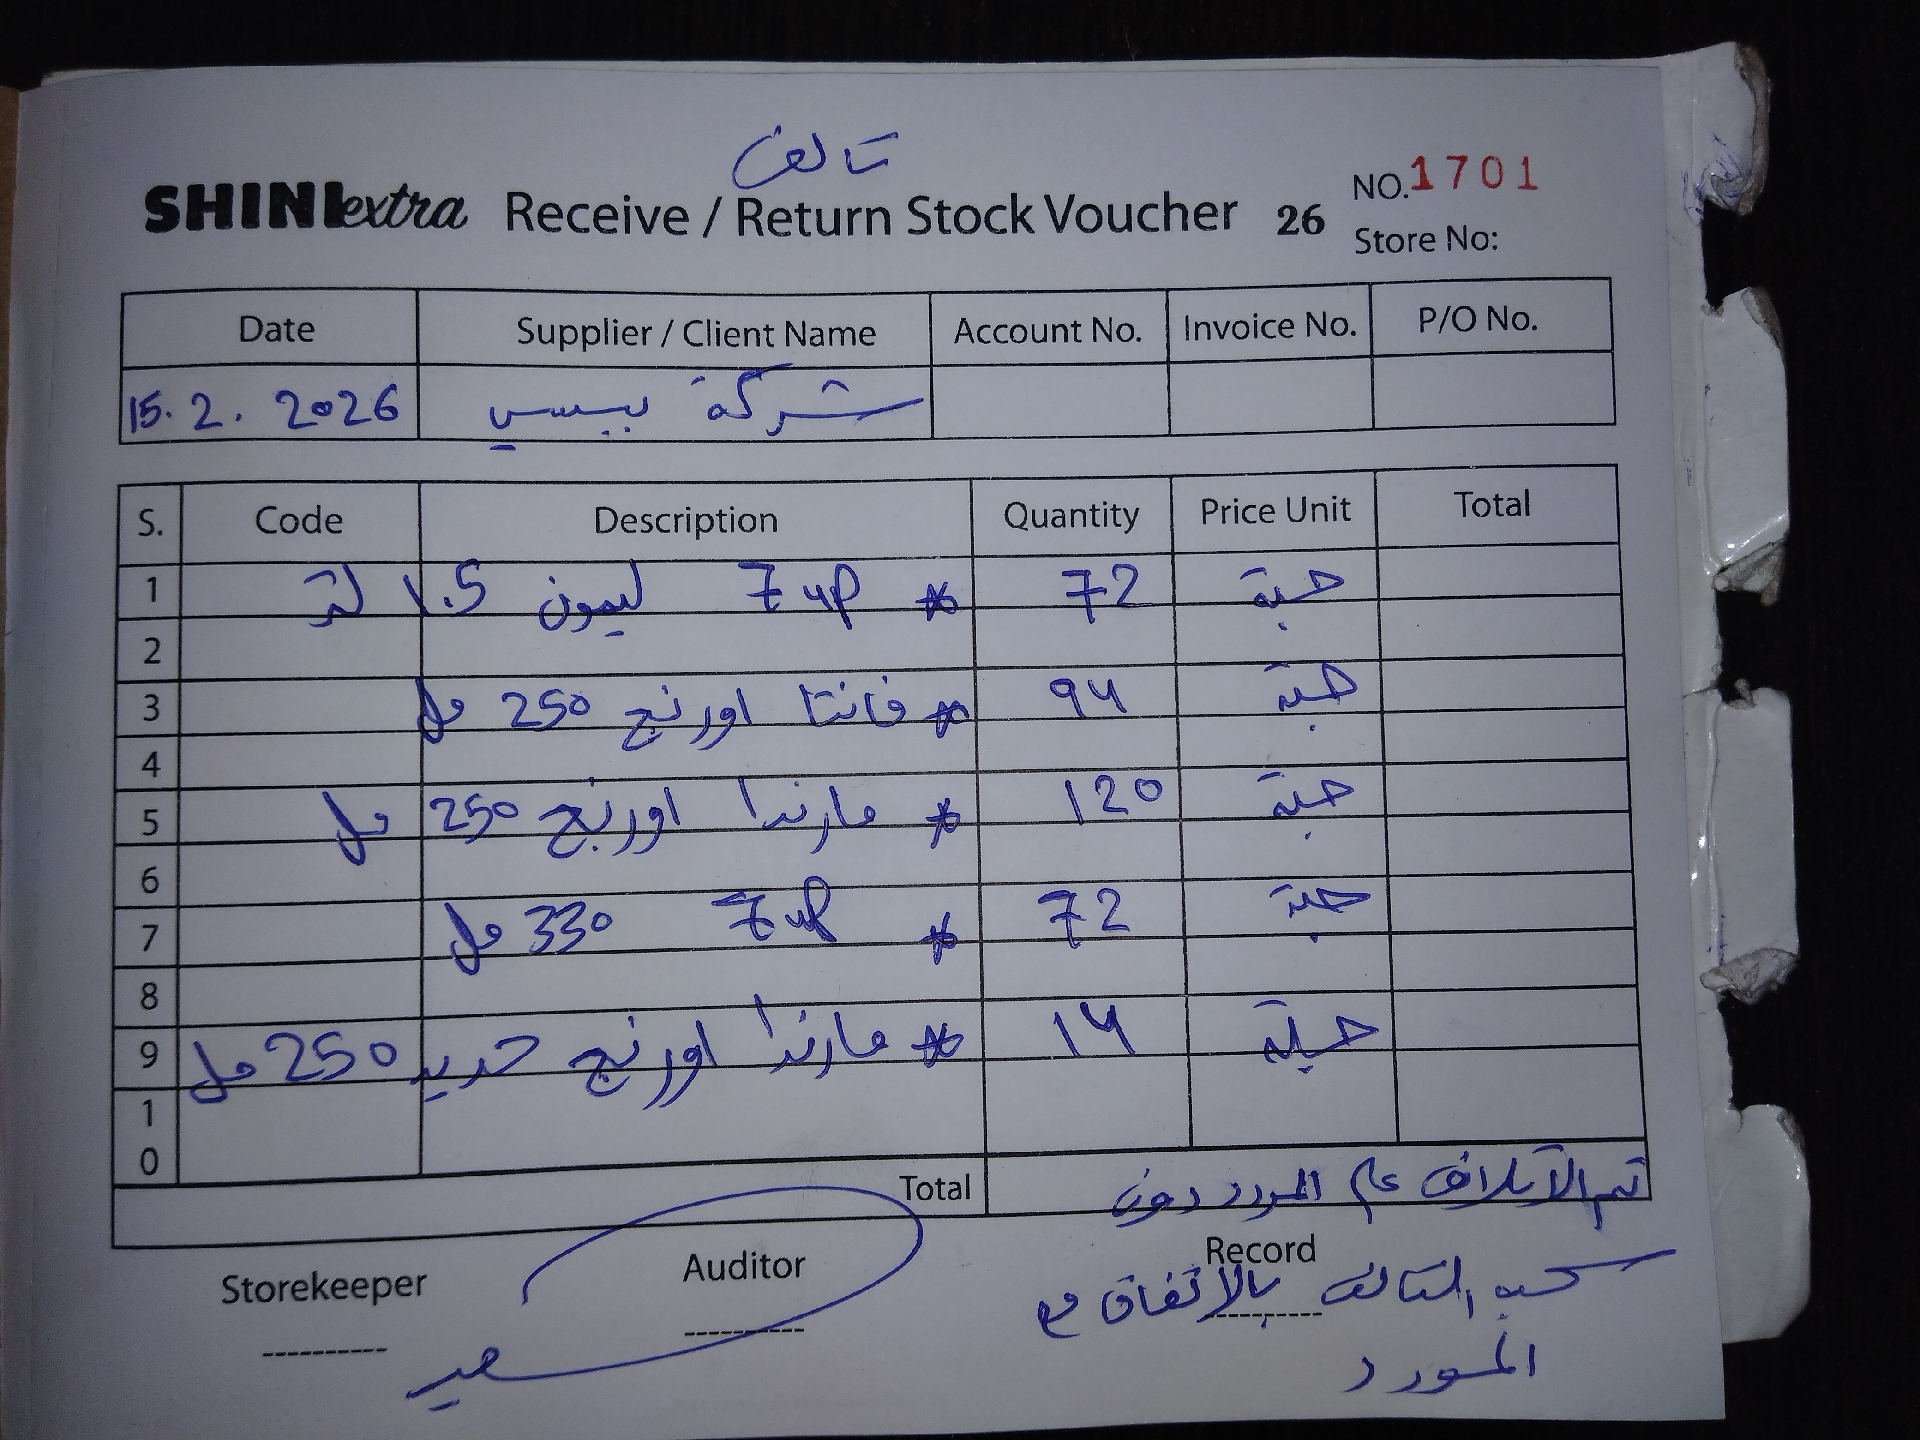 تالف
SHINI extra Receive / Return Stock Voucher 26
NO. 1701
Store No:
Date Supplier / Client Name Account No. Invoice No. P/O No.
15.2.2026 شركة بيبسي
S. Code Description Quantity Price Unit Total
1 * 7up ليمون 1.5 لتر 72 حبة
2
3 * فانتا اورنج 250 مل 94 حبة
4
5 * مارندا اورنج 250 مل 120 حبة
6
7 * 7up 330 مل 72 حبة
8
9 * مارندا اورنج حديد 250 مل 14 حبة
10
Total تم الآتلاف علم المورد دون
Storekeeper Auditor Record
سحب التالف بالاتفاق مع
المورد
سعيد